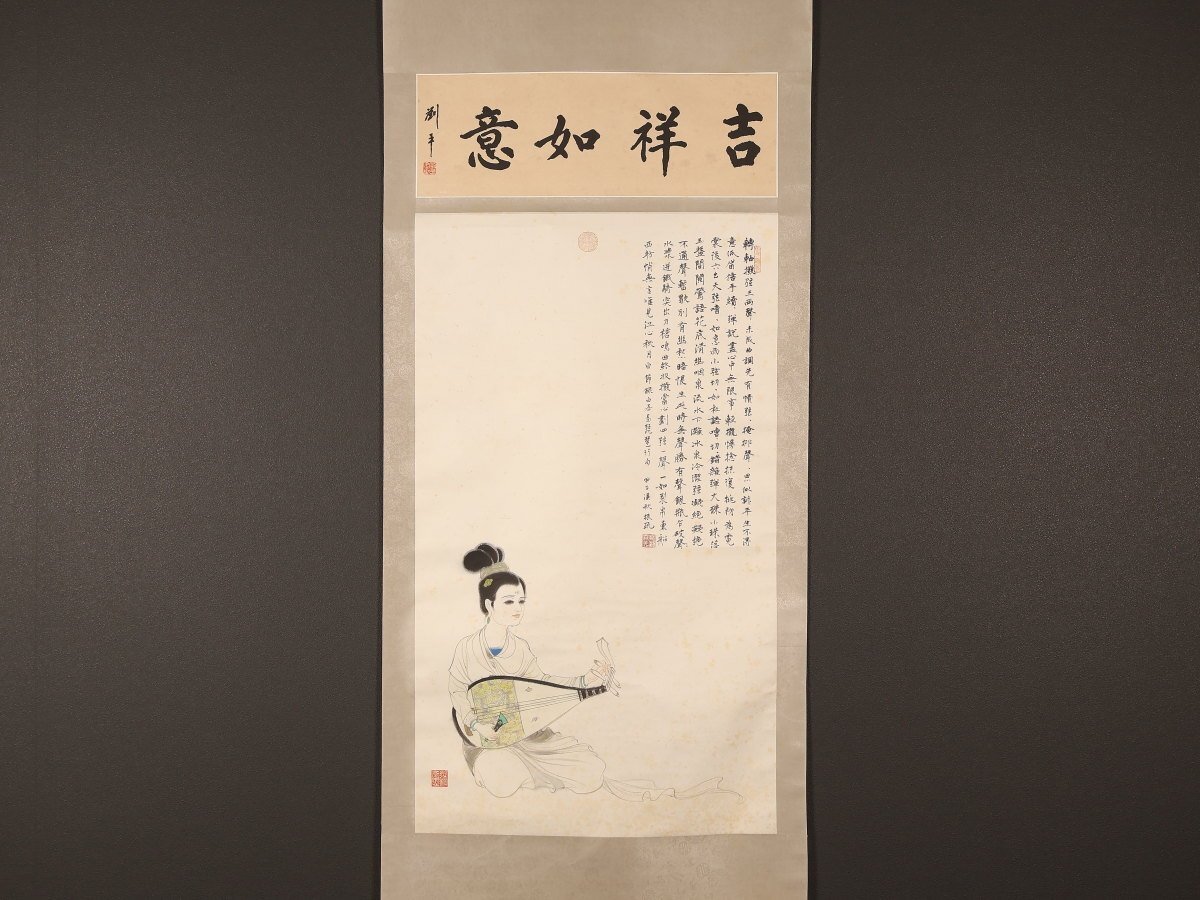 吉祥如意
劉平
轉軸撥弦三兩聲未成曲調先有情弦、掩抑聲、思似訴平生不得
意低眉信手續、彈說盡心中無限事輕攏慢撚抹復挑初為霓
裳後六幺大弦嘈、如急雨小弦切、如私語嘈切錯雜彈大珠小珠落
玉盤間關鶯語花底滑幽咽泉流水下灘冰泉冷澀弦凝絕凝絕
不通聲暫歇別有幽愁暗恨生此時無聲勝有聲銀瓶乍破聲
水漿迸鐵騎突出刀槍鳴曲終收撥當心劃四弦一聲一如裂帛東船
西舫悄無言唯見江心秋月白節錄白居易琵琶行句甲子深秋